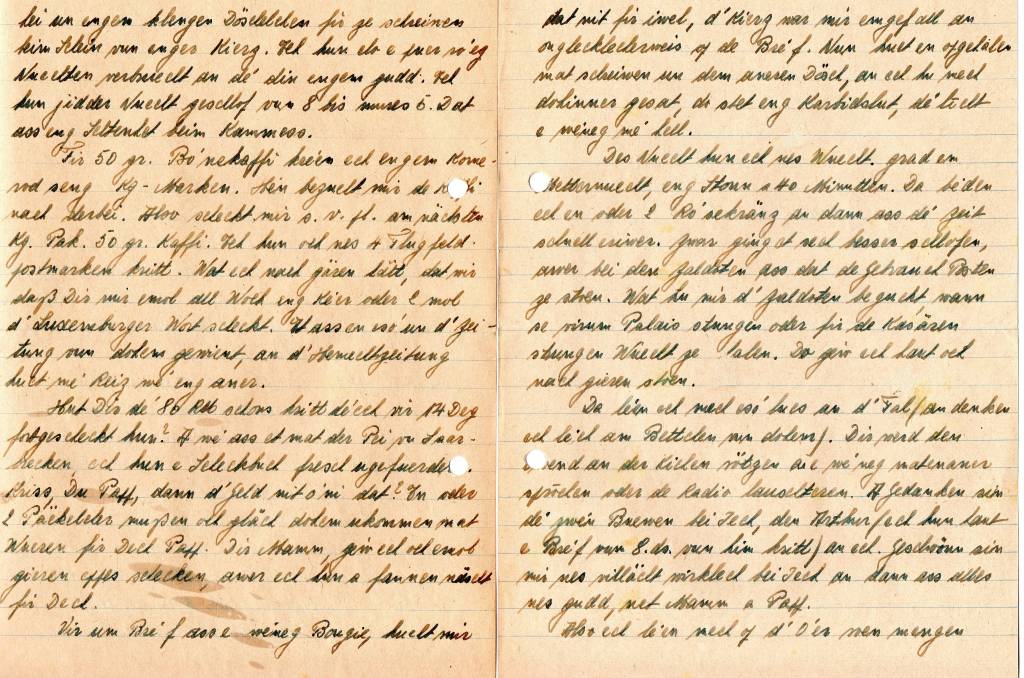 bei un engem klengen Döschelchen fir ze scheinen
kim Schein vun enger Kierz. Ech hun elo e puer ro'eg
Nuechten verbruecht an dé din engem gudd. Ech
hun jidder Nuecht geschlof vun 8 bis mures 5. Dat
ass eng Seltenhet beim Kommess.
Fir 50 gr. Bo'nekaffi kréien ech engem Kome-
rod seng Kg-Marken. Hien bezuelt mir de
nach derbei. Also scheckt mir s. v. pl. am nächsten
Kg. Pak. 50 gr. Kaffi. Ech hun och nes 4 Flugfeld-
postmarken kritt. Wat ech nach gären hätt, dat wir
daß Dir mir emol all Woch eng Ke'er oder 2 mol
d'Luxemburger Wort scheckt. Et ass en esé un d'Zei-
tung vun dohem gewint, an d'Hemechtzeitung
huet mé Reiz wé eng aner.
Hut Dir dé 80 RM schons kritt dé ech vir 14 Deg
fortgescheckt hun? A wé ass et mat der Pei, vu Saar-
brecken, ech hun e Scheckbuch fresch ugefuerdert.
Kriss, Du Paff, dann d'Geld nit o'ni dat? En oder
2 Päckelcher mußen och gläch dohem ukommen mat
Wueren fir Dech Paff. Dir Mamm, géw ech och emol
gieren eppes schecken, awer ech hun a fannen näischt
fir Dech.
Vir um Bréf ass e wéneg Bougie, huelt mir
dat nit fir iwel, d'Kierz war mir emgefall an
onglecklecherweis op de Bréf. Nun huet en opgehalen
mat scheiwen un dem aneren Dösch, an ech hu mech
dohinner gesat, do stet eng Karbidslut, dé liicht
e wéneg mé hell.
Des Nuecht hun ech nes Wuecht. grad em
Metternuecht, eng Stonn a 40 Minutten. Da bieden
ech en oder 2 Ro'sekränz an dann ass dé Zeit
schnell eriwer. Zwar ging et sech besser schlofen,
awer bei den Zaldoten ass dat de Gebrauch Posten
ze stoen. Wat hu mir d'Zaldoten begucht wann
se virum Palais stungen oder fir de Kasären
stungen Wuecht ze halen. Do géw ech haut och
nach gieren stoen.
Da léen ech mech esé lues an d'Fal (an denken
ech léich am Bettchen vun dohem). Dir werd den
Owend an der Kichen sötzen an e wéneg matenaner
spillen oder de Radio lauschteren. A Gedanken sin
dé zwein Buewen bei Iech, den Arthur (ech hun haut
e Bréf vum 8. ds. vun him kritt) an ech. Geschwönn sin
mir nes villäicht wirklech bei Iech an dann ass alles
nes gudd, net Mamm a Paff.
Also ech léen mech op d'O'er wen mengen